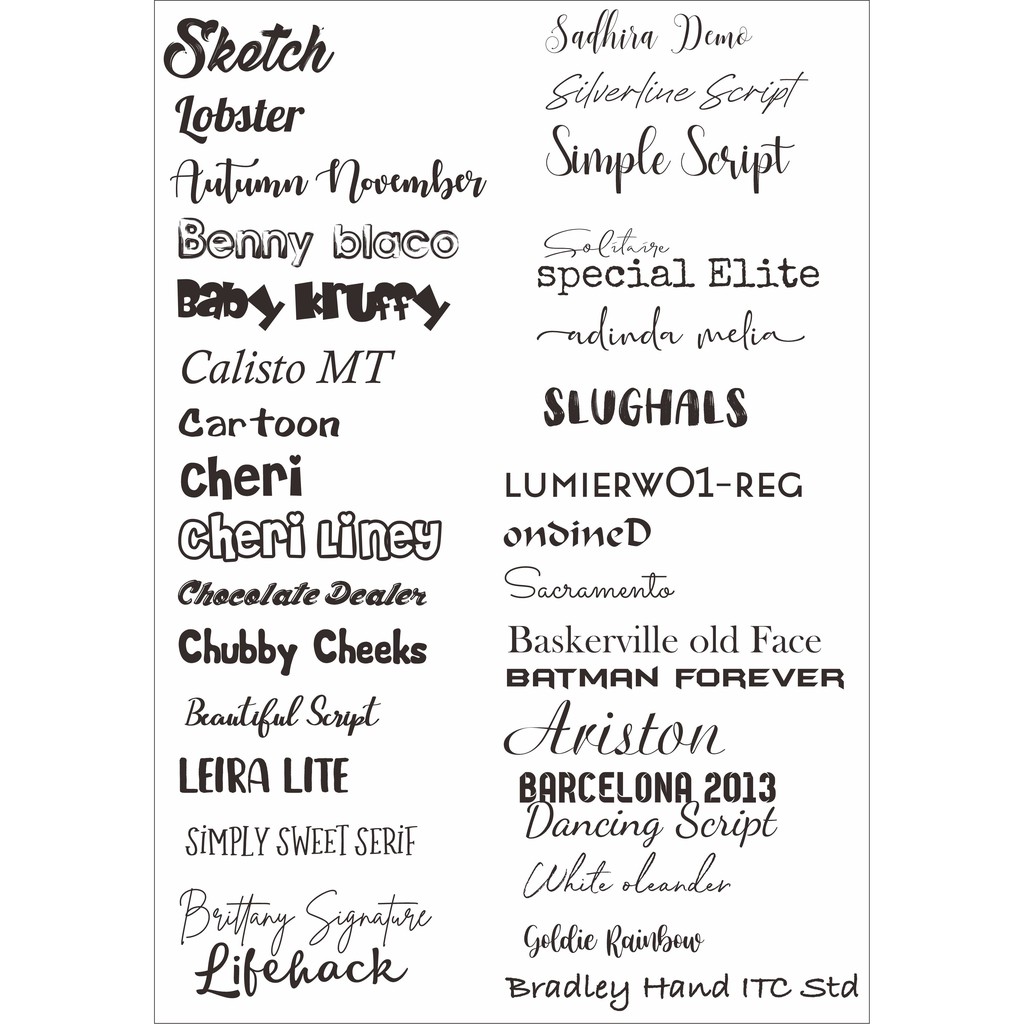 Sketch
Lobster
Autumn November
Benny blaco
Baby kruffy
Calisto MT
Cartoon
Cheri
Cheri Liney
Chocolate Dealer
Chubby Cheeks
Beautiful Script
LEIRA LITE
SiMPLY SWEET SERiF
Brittany Signature
Lifehack
Sadhira Demo
Silverline Script
Simple Script
Solitaire
special Elite
adinda melia
SLUGHALS
LUMIERW01-REG
ondineD
Sacramento
Baskerville old Face
BATMAN FOREVER
Ariston
BARCELONA 2013
Dancing Script
White oleander
Goldie Rainbow
Bradley Hand ITC Std